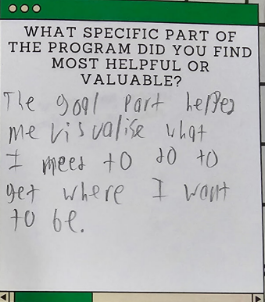 WHAT SPECIFIC PART OF
THE PROGRAM DID YOU FIND
MOST HELPFUL OR
VALUABLE?
The goal part helped
me visualise what
I need to do to
get where I want
to be.